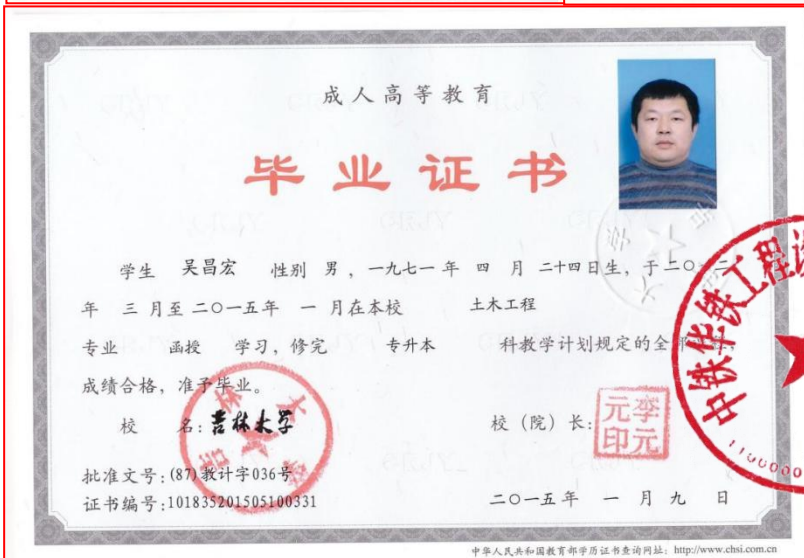 成人高等教育
毕业证书
学生 吴昌宏 性别 男，一九七一年 四 月 二十四日生，于二〇一二
年 三 月至二〇一五年 一 月在本校 土木工程
专业 函授 学习，修完 专升本 科教学计划规定的全部课程，
成绩合格，准予毕业。
校 名：吉林大学
校（院）长：
李元元印
批准文号：(87)教计字036号
证书编号：101835201505100331
二〇一五年 一 月 九 日
中华人民共和国教育部学历证书查询网址：http://www.chsi.com.cn
中铁华铁工程设